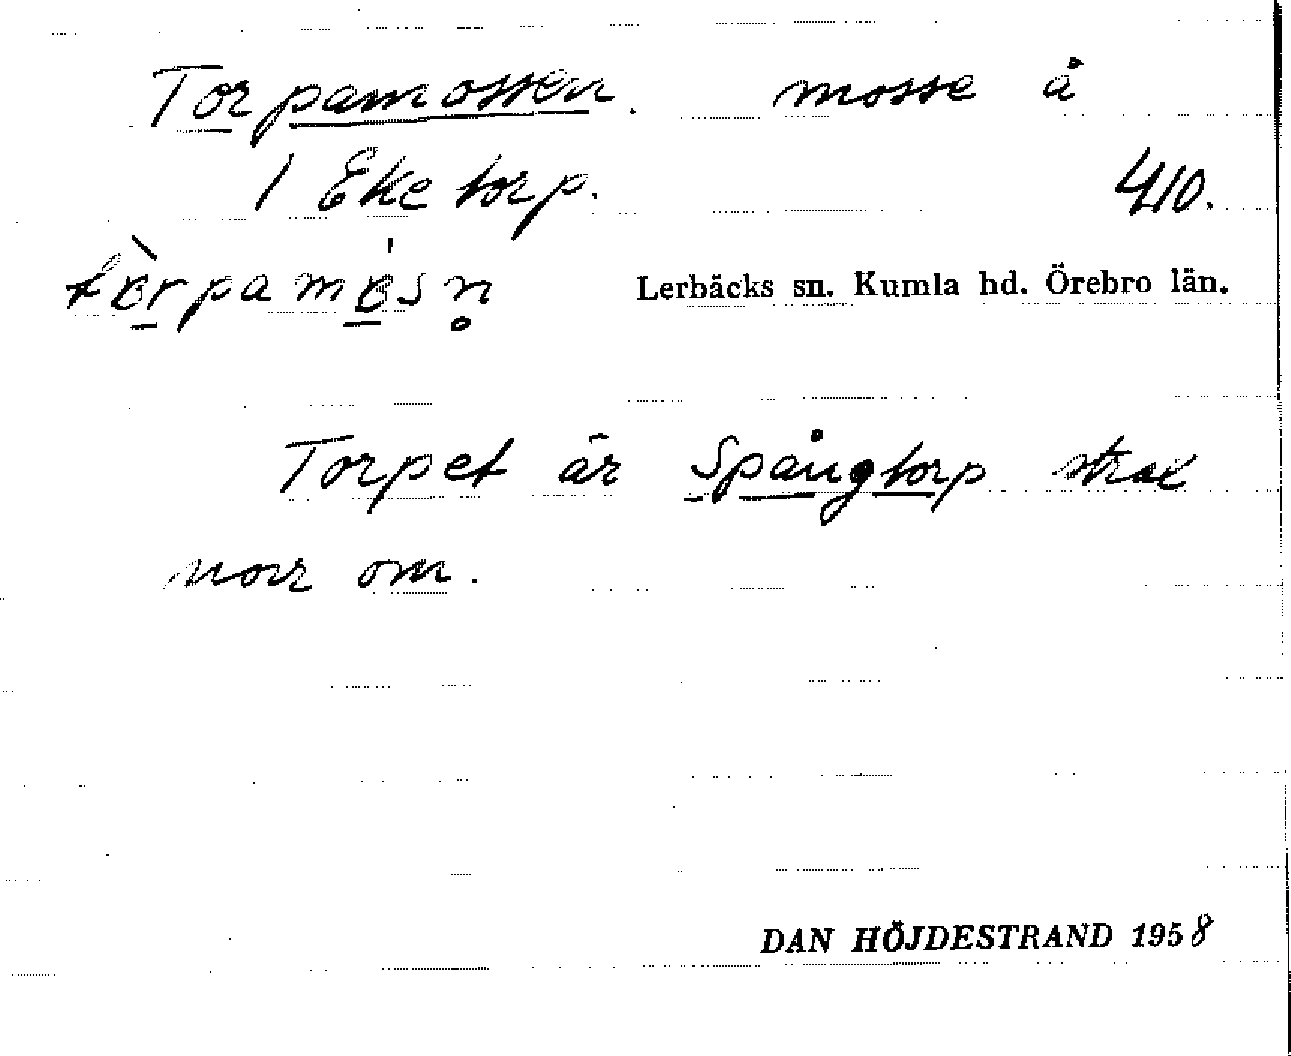 Torpamossen. mosse å
1 Eketorp. 410.
Lerbäcks sn. Kumla hd. Örebro län.
Torpet är Spångtorp strax
norr om.
DAN HÖJDESTRAND 1958